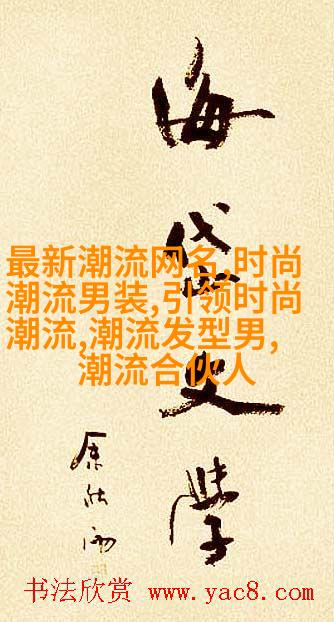 海岱史学
最新潮流网名,时尚
潮流男装,引领时尚
潮流,潮流发型男,
潮流合伙人
书法欣赏 www.yac8.com